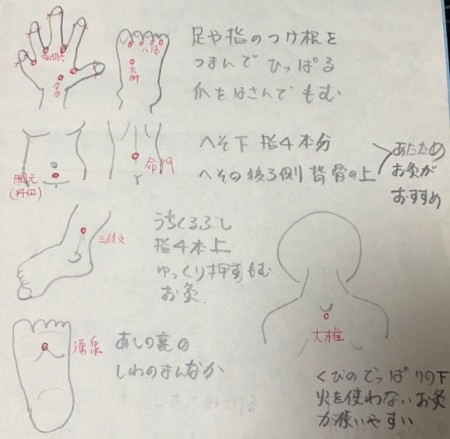 八風
太衝
合谷
足や指のつけ根を
つまんで ひっぱる
爪をはさんで もむ
関元
(丹田)
命門
へそ下 指4本分
へその後ろ側 背骨の上
あたため
お灸が
おすすめ
三陰交
うちくるぶし
指4本上
ゆっくり押すもむ
お灸
湧泉
あしの裏の
しわのまんなか
大椎
くびのでっぱりの下
火を使わないお灸
が使いやすい